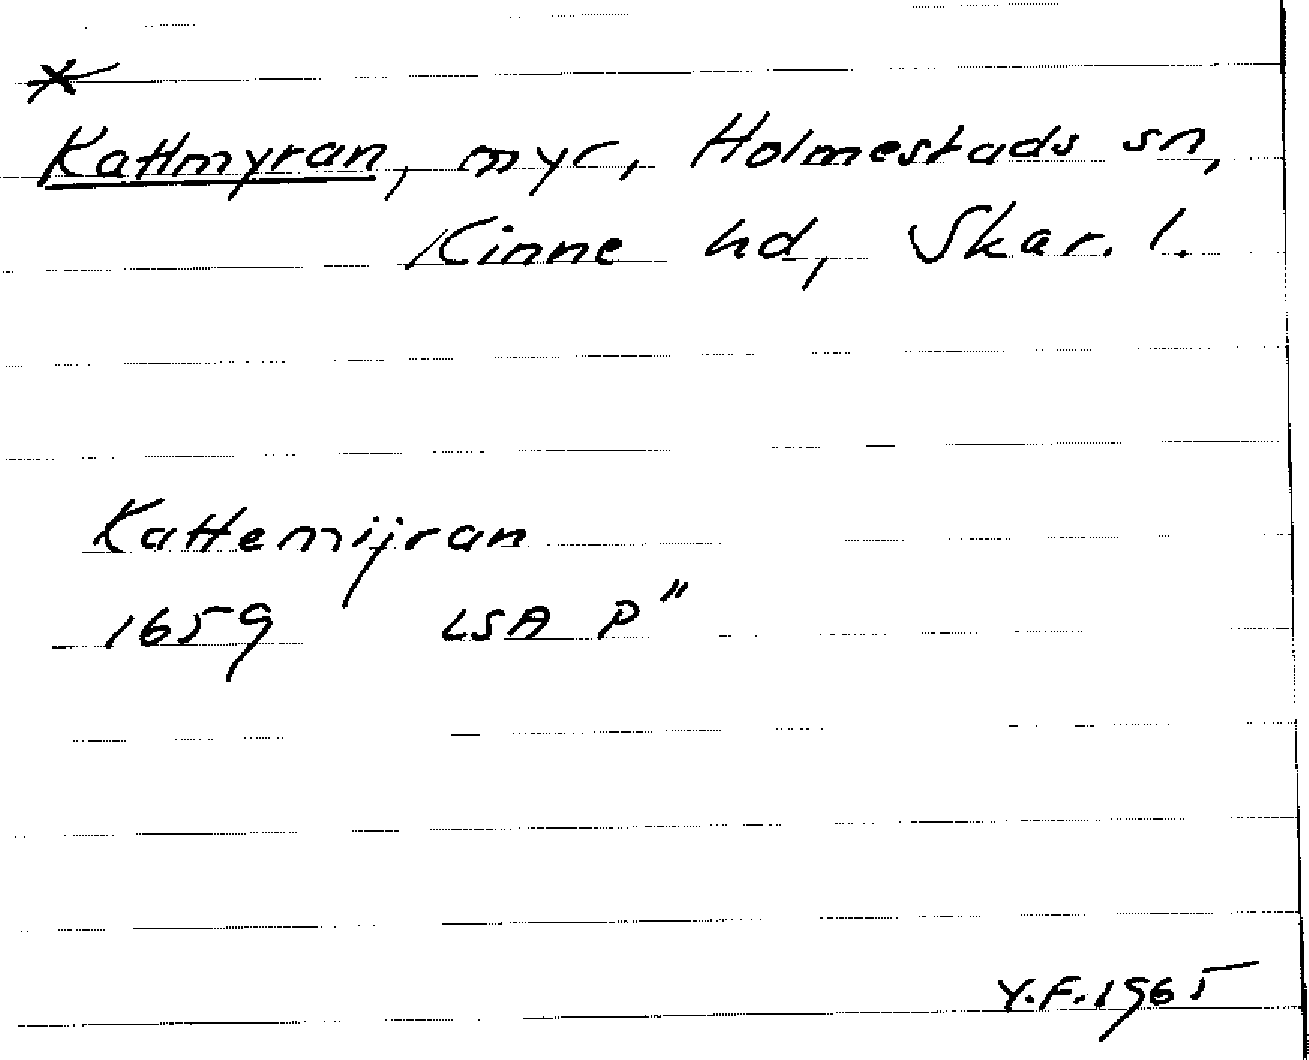 *
Kattmyran, myr, Holmestads sn,
Kinne hd, Skar. l.
Kattemijran
1659 LSA P"
Y.F. 1965